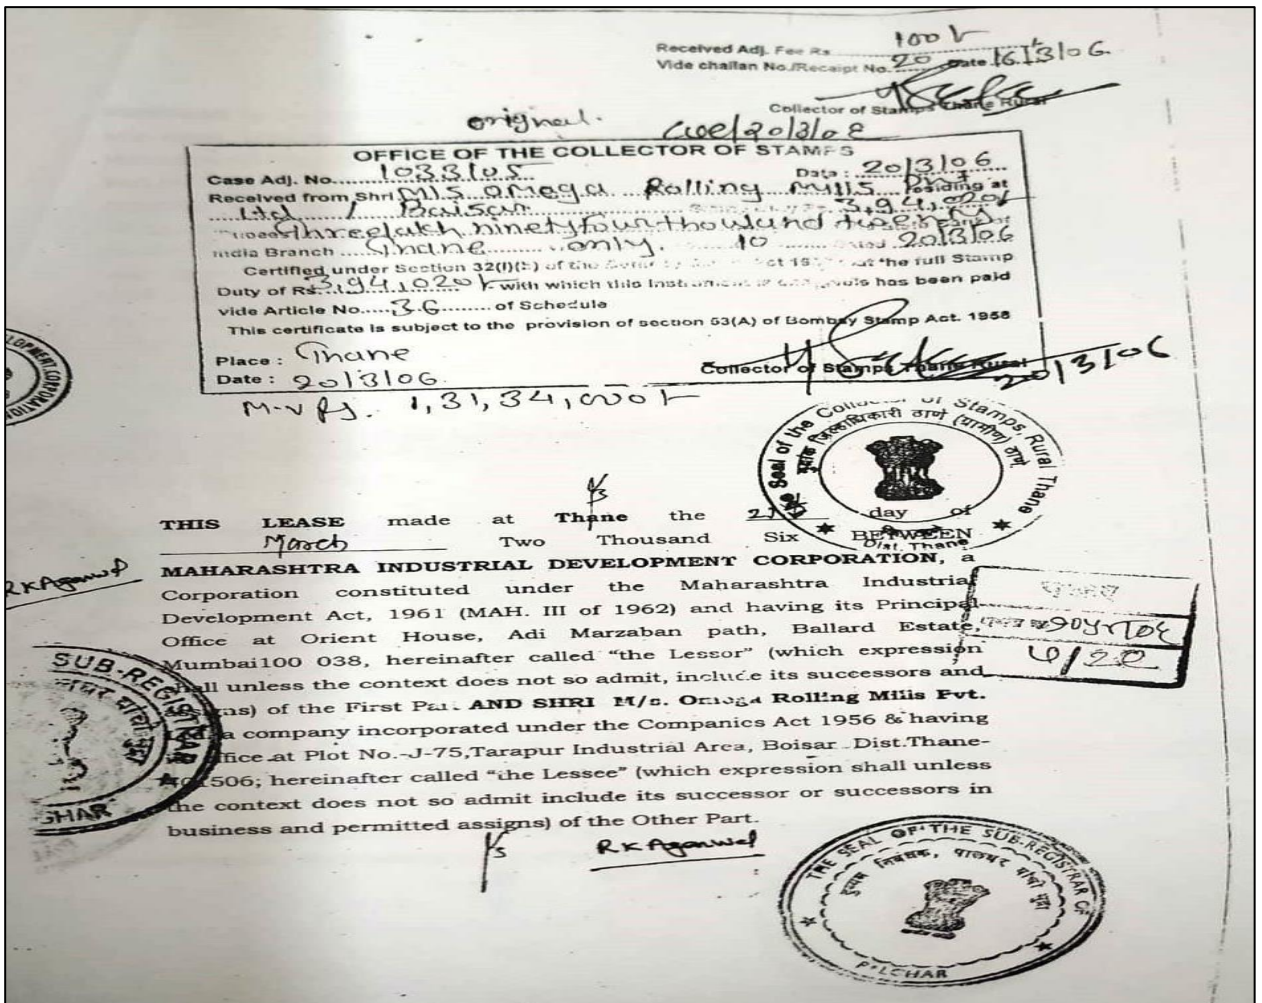 Received Adj. Fee Rs 100/-
Vide challan No./Receipt No. 20 Date 16/3/06
Collector of Stamps Thane Rural
original.
OFFICE OF THE COLLECTOR OF STAMPS
Case Adj. No. 1033/05 Date : 20/3/06
Received from Shri M/s Omega Rolling Mills Pvt residing at
Ltd / Boisar 3,94,020/-
Three lakh ninety four thousand twenty
India Branch Thane only. 10 20/3/06
Certified under Section 32(I)(b) of the the full Stamp
Duty of Rs. 3,94,020/- with which this has been paid
vide Article No. 36 of Schedule
This certificate is subject to the provision of section 53(A) of Bombay Stamp Act. 1958
Place : Thane
Date : 20/3/06
Collector of Stamps Thane Rural
20/3/06
M.V Rs. 1,31,34,000/-
The Seal of the Collector of Stamps, Rural Thane
मुद्रांक जिल्हाधिकारी ठाणे (ग्रामीण) ठाणे
Dist. Thane
THIS LEASE made at Thane the day of
March Two Thousand Six BETWEEN
MAHARASHTRA INDUSTRIAL DEVELOPMENT CORPORATION, a
Corporation constituted under the Maharashtra Industrial
Development Act, 1961 (MAH. III of 1962) and having its Principal
Office at Orient House, Adi Marzaban path, Ballard Estate,
Mumbai100 038, hereinafter called “the Lessor” (which expression
shall unless the context does not so admit, include its successors and
assigns) of the First Part AND SHRI M/s. Omega Rolling Mills Pvt.
a company incorporated under the Companies Act 1956 & having
office at Plot No.-J-75,Tarapur Industrial Area, Boisar Dist.Thane-
506; hereinafter called “the Lessee” (which expression shall unless
the context does not so admit include its successor or successors in
business and permitted assigns) of the Other Part.
RKAgarwal
RKAgarwal
4/20
DEVELOPMENT CORPORATION
SUB-REGISTRAR
THE SEAL OF THE SUB-REGISTRAR OF
दुय्यम निबंधक, पालघर यांची मुद्रा
PALGHAR